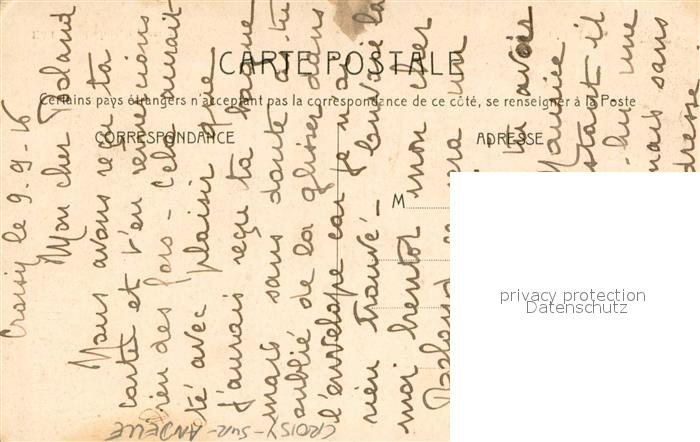 CARTE POSTALE
Certains pays étrangers n'acceptant pas la correspondance de ce côté, se renseigner à la Poste
CORRESPONDANCE
ADRESSE
M
Croisy le 9.9.16
Mon cher Roland
Nous avons reçu ta
carte et t'en remercions
bien des fois - Cela aurait
été avec plaisir que
j'aurais reçu ta bague
mais sans doute as-tu
oublié de la glisser dans
l'enveloppe car je n'ai
rien trouvé - Envoie la
moi bientôt mon cher
Roland
tu avais
mais sans
CROISY-SUR-ANDELLE
privacy protection
Datenschutz